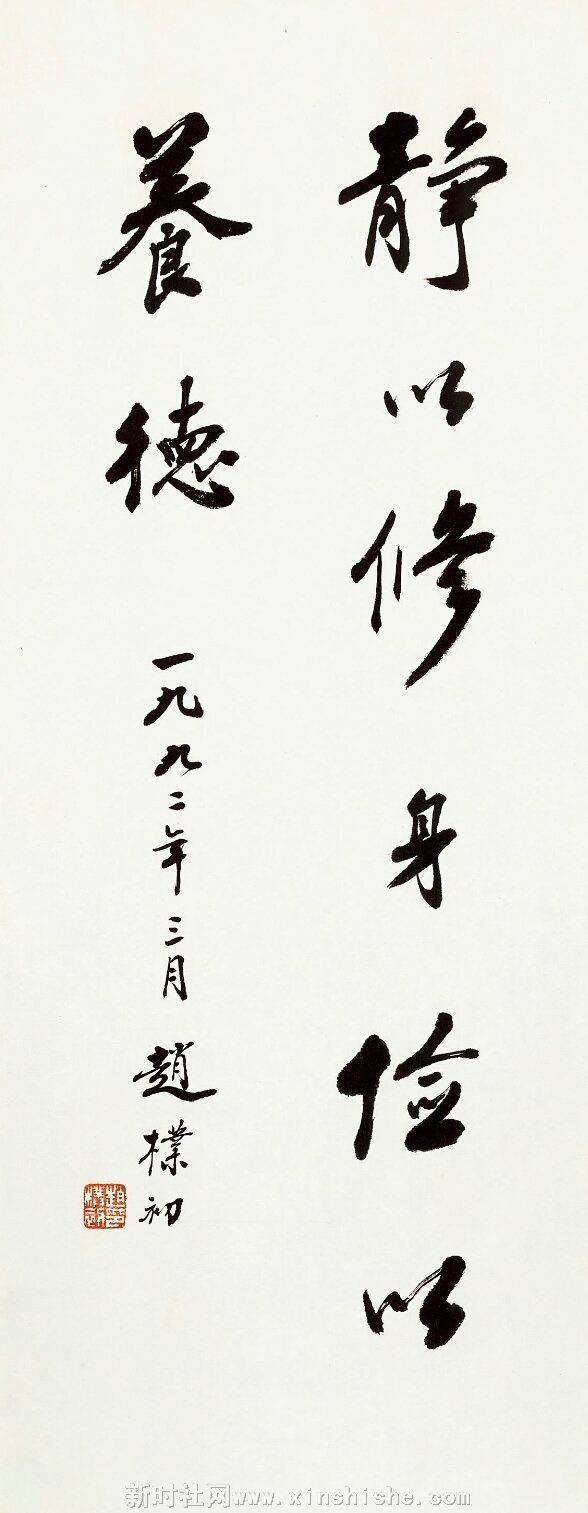 静以修身俭以
養德
一九九二年三月 趙樸初
趙樸初印
新时社网www.xinshishe.com